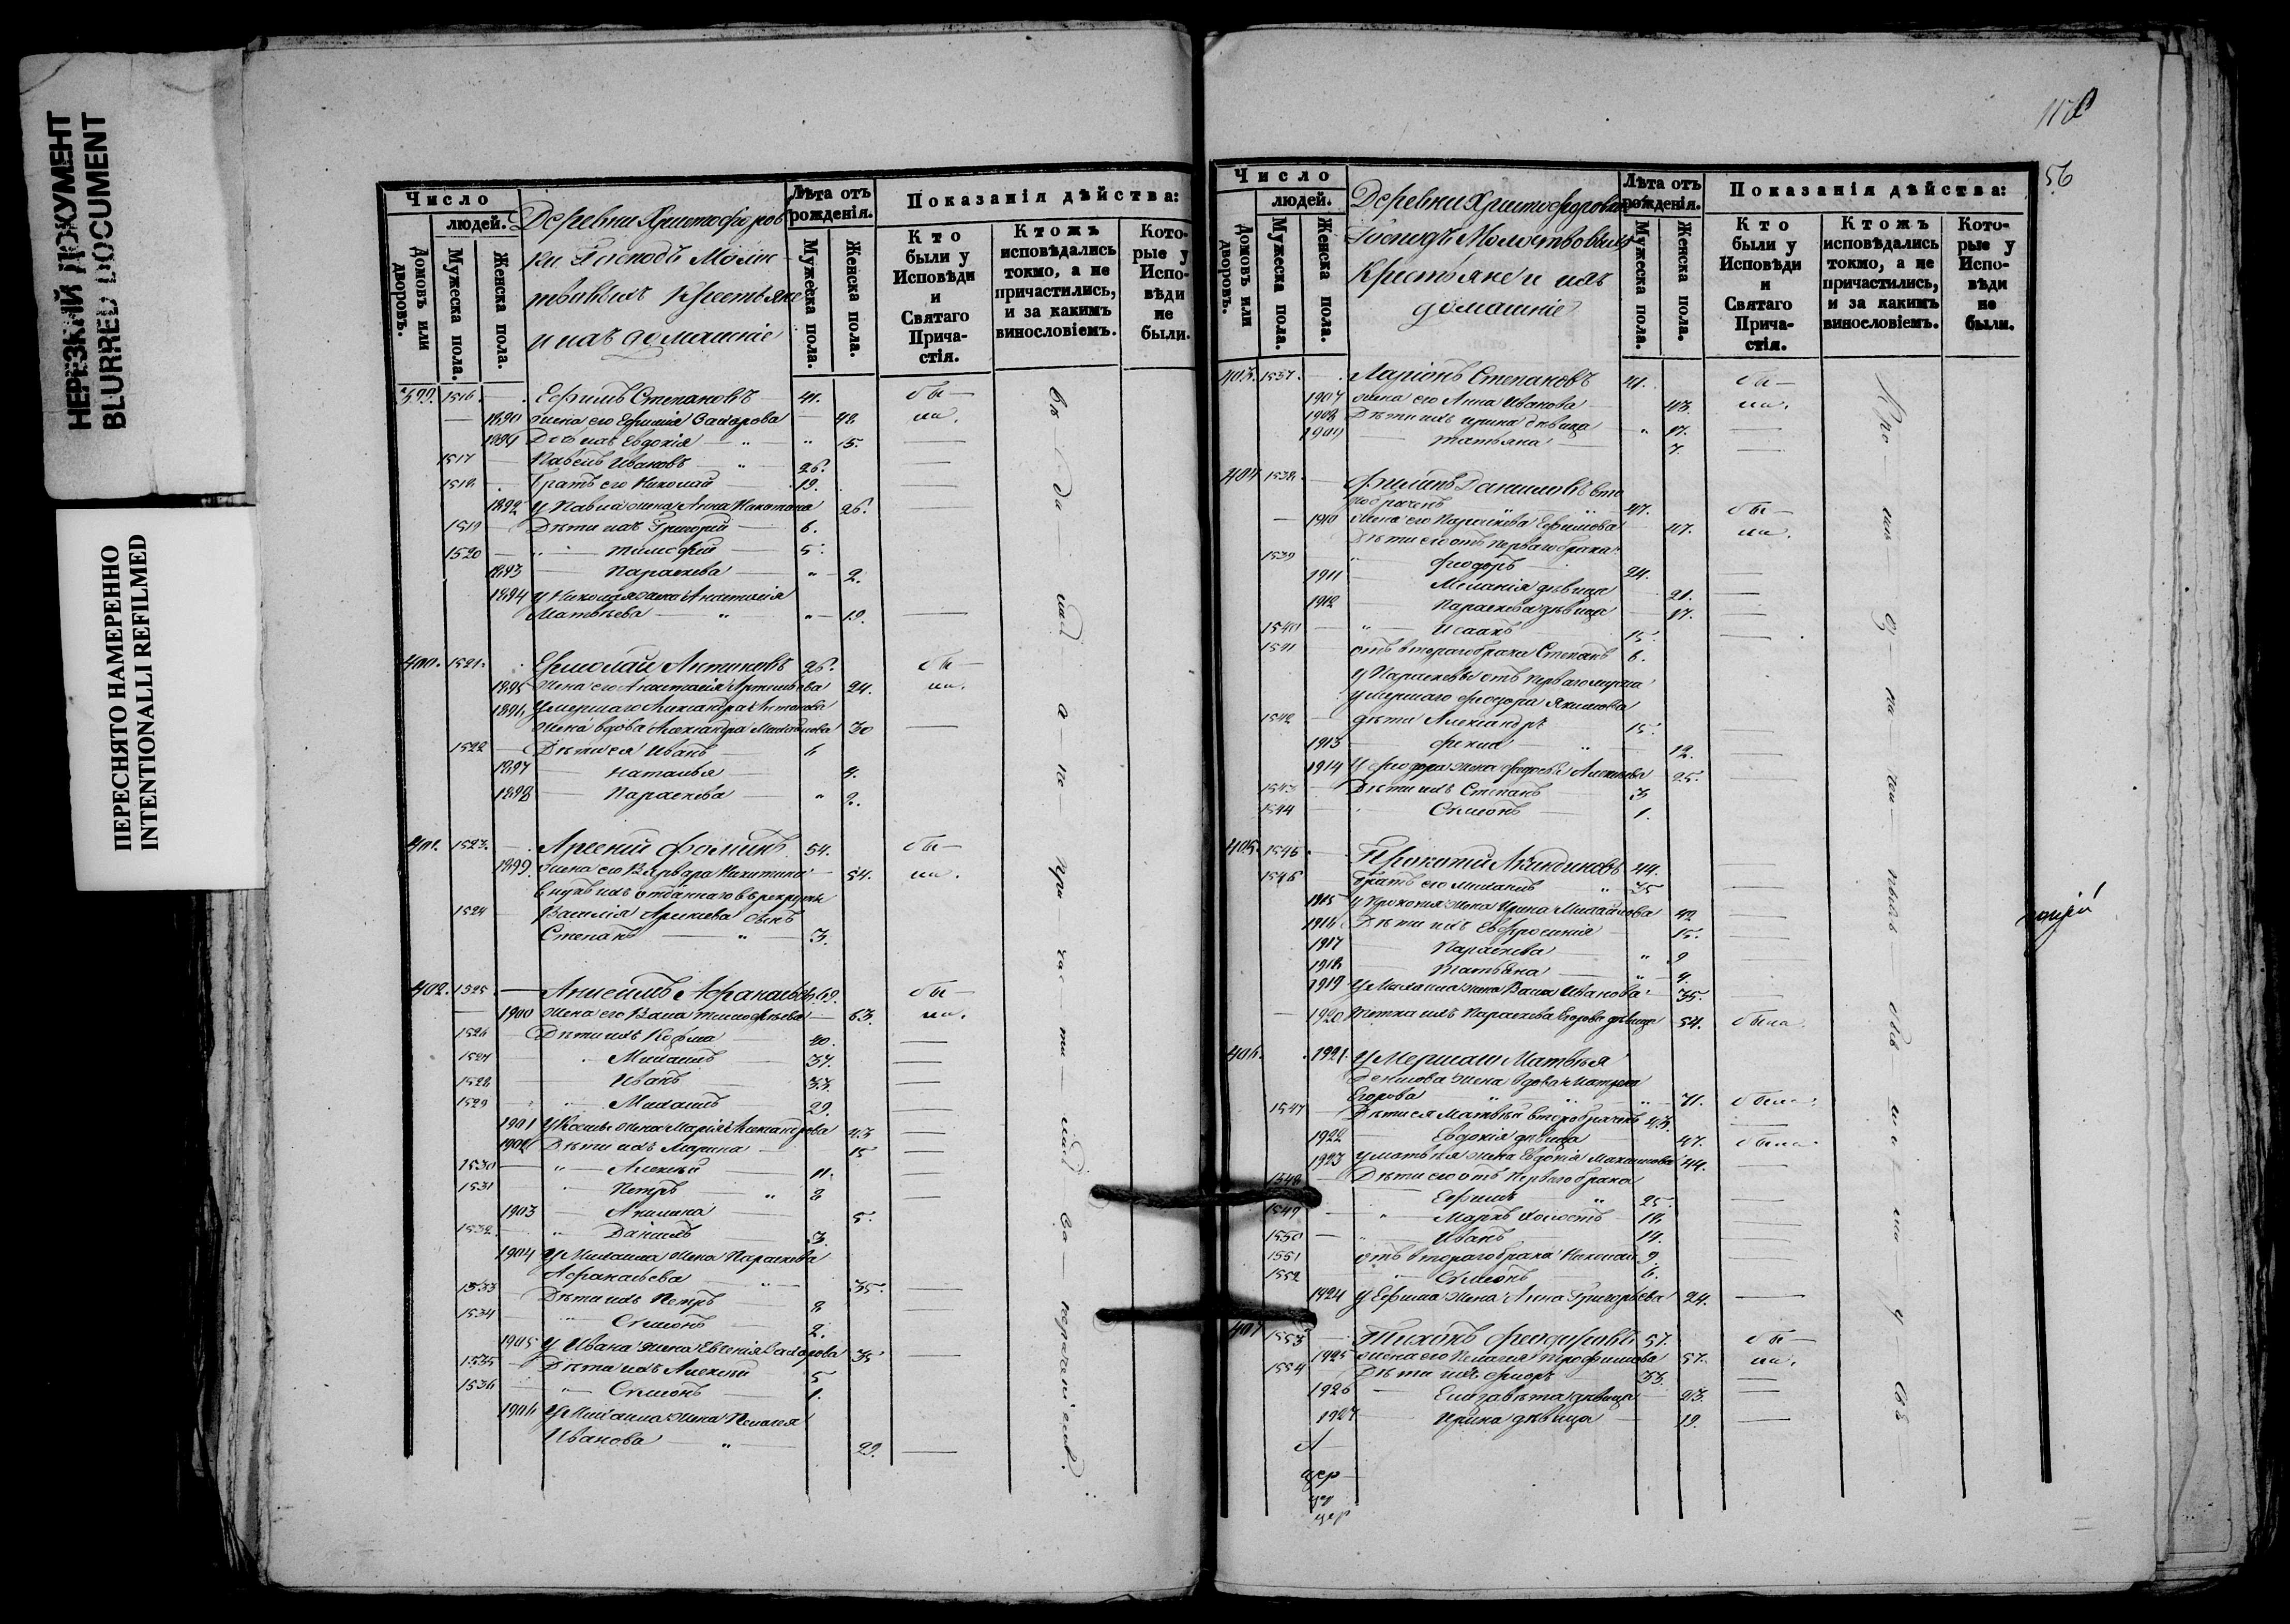 НЕРЕЗКИЙ ДОКУМЕНТ
BLURRED DOCUMENT
ПЕРЕСНЯТО НАМЕРЕННО
INTENTIONALLI REFILMED
Число
людей.
Домовъ или дворовъ.
Мужеска пола.
Женска пола.
Деревни Христофоров
ки Господъ Молос
твовыхъ Крестьяне
и ихъ домашніе
Лѣта отъ рожденія.
Мужеска пола.
Женска пола.
Показанія дѣйства:
Кто были у Исповѣди и Святаго Причастія.
Ктожъ исповѣдались токмо, а не причастились, и за какимъ винословіемъ.
Которые у Исповѣди не были.
399. 1516. Ефимъ Степановъ 41. бы-
1890 жена его Ефимія Захарова 42 ли.
1891 Дочь ихъ Евдокія 15.
1517 Павелъ Ивановъ 26.
1518 Братъ его Николай 19.
1892 У Павла жена Анна Никитина 26.
1519 Дѣти ихъ Григорій 6.
1520 Тимофей 5.
1893 Параскева 2.
1894 У Николая жена Анастасія
Матвѣева 19.
400. 1521. Ермолай Антиповъ 26. бы-
1895 Жена его Анастасія Артемьева 24. ли.
1896 Умершаго Александра Антипова
жена вдова Александра Михайлова 30
1522 Дѣти ея Иванъ 6
1897 Наталья 4.
1898 Параскева 2.
401. 1523. Арсеній Фоминъ 54. бы-
1899. Жена его Варвара Никитина 54. ли.
Внукъ ихъ отданнаго въ рекруты
1524 Василія Арсеньева сынъ
Степанъ 3.
402. 1525. Анисимъ Афанасьевъ 69. бы-
1900 Жена его Васса Тимофѣева 63. ли.
1526 Дѣти ихъ Козма 40.
1527 Михаилъ 37.
1528 Иванъ 33.
1529 Михаилъ 29.
1901 У Космы жена Марія Александрова 43
1902 Дѣти ихъ Марина 15
1530 Алексѣй 11.
1531 Петръ 8
1903 Акилина 5.
1532 Даніилъ 3.
1904 У Михаила жена Параскева
Афанасьева 35.
1533 Дѣти ихъ Петръ 8
1534 Симеонъ 2.
1905 У Ивана жена Евгенія Захарова 35
1535 Дѣти ихъ Алексѣй 5
1536 Симеонъ 1.
1906 У Михаила жена Пелагея
Иванова 29.
56
Число
людей.
Домовъ или дворовъ.
Мужеска пола.
Женска пола.
Деревни Христофоровки
Господъ Молоствовыхъ
Крестьяне и ихъ
домашніе
Лѣта отъ рожденія.
Мужеска пола.
Женска пола.
Показанія дѣйства:
Кто были у Исповѣди и Святаго Причастія.
Ктожъ исповѣдались токмо, а не причастились, и за какимъ винословіемъ.
Которые у Исповѣди не были.
403. 1537. Ларіонъ Степановъ 41. бы-
1907 жена его Анна Иванова 43. ли.
1908 Дѣти ихъ Ирина дѣвица 17.
1909 Татьяна 7.
404 1538. Филипъ Даниловъ вто
робраченъ 47. бы-
1910 Жена его Параскева Ефимова 47. ли.
Дѣти его отъ перваго брака:
1539 Феодоръ 24.
1911 Меланія дѣвица 21.
1912 Параскева дѣвица 17.
1540 Исаакъ 15.
1541 отъ втораго брака Степанъ 6.
У Параскевы отъ перваго мужа
умершаго Феодора Якимова
1542 дѣти Александръ 15.
1913 Фекла 12.
1914 У Феодора жена Федосья Алексѣева 25.
1543 Дѣти ихъ Степанъ 3
1544 Симеонъ 1.
405. 1545 Прокопій Акиндиновъ 44.
1546 Братъ его Михаилъ 35
1915 У Прокопія жена Ирина Михайлова 42
1916 Дѣти ихъ Евфросинія 15.
1917 Параскева 9
1918 Татьяна 4.
1919 У Михаила жена Васса Иванова 35.
1920. Тетка ихъ Параскева Егорова дѣвица 54. была.
406. 1921. Умершаго Матвѣя
Денисова жена вдова Матрена
Егорова 71. была.
1547 Дѣти ея Матвѣй второбраченъ 43.
1922 Евдокія дѣвица 47. была.
1923 У Матвѣя жена Евдокія Максимова 44.
1548 Дѣти его отъ перваго брака
Ефимъ 25.
1549 Маркъ холостъ 18.
1550 Иванъ 14.
1551 отъ втораго брака Николай 9.
1552 Симеонъ 6.
1924 У Ефима жена Анна Григорьева 24.
407 1553 Тихонъ Феодоровъ 57. бы-
1925 жена его Пелагея Трофимова 57. ли.
1554 Дѣти ихъ Флоръ 33.
1926 Елизавета дѣвица 23.
1927 Ирина дѣвица 19.